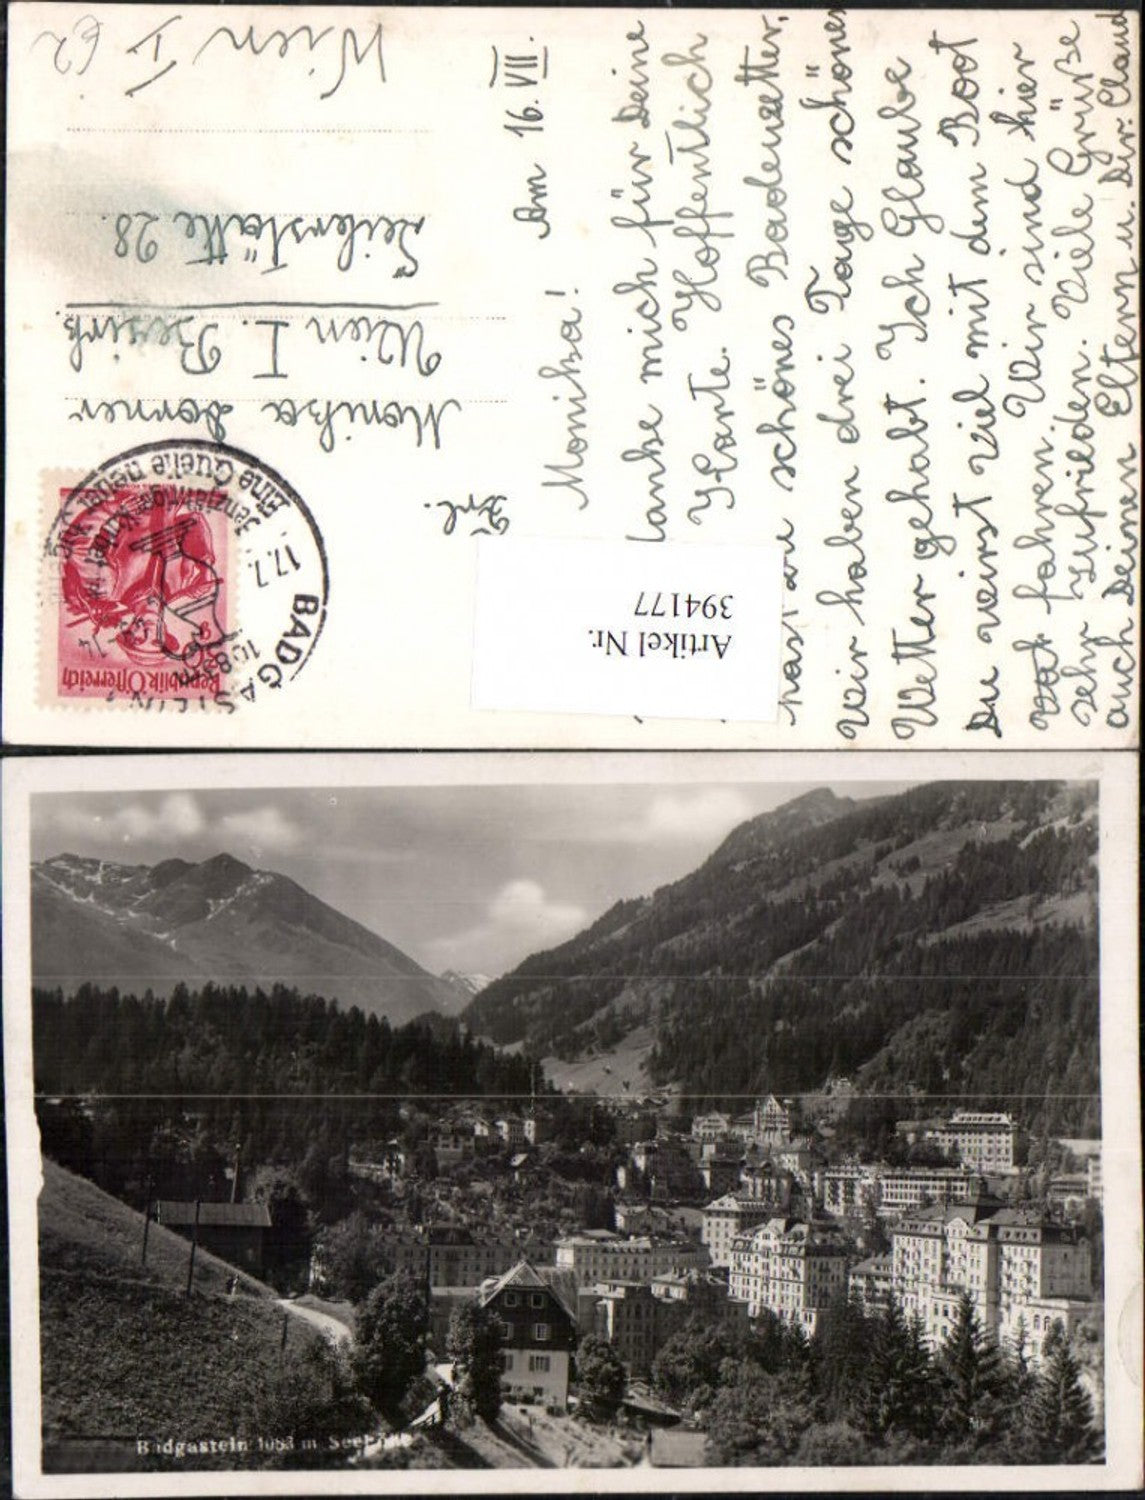 Am 16. VII.
Monika!
danke mich für Deine
Karte. Hoffentlich
hast du schönes Badewetter,
wir haben drei Tage schönes
Wetter gehabt. Ich Glaube
Du wirst viel mit dem Boot
fahren. Wir sind hier
sehr Zufrieden. Viele Grüße
auch Deinen Eltern u. Dir. Claud
Frl.
Monika Dorner
Wien I. Bezirk.
Seilerstätte 28.
Wien I 62
Republik Österreich
BADGASTEIN 1
17.7.
Eine Quelle neuer
Artikel Nr.
394177
Badgastein 1083 m Seehöhe